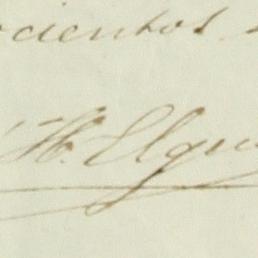 cientos
H. Elgu